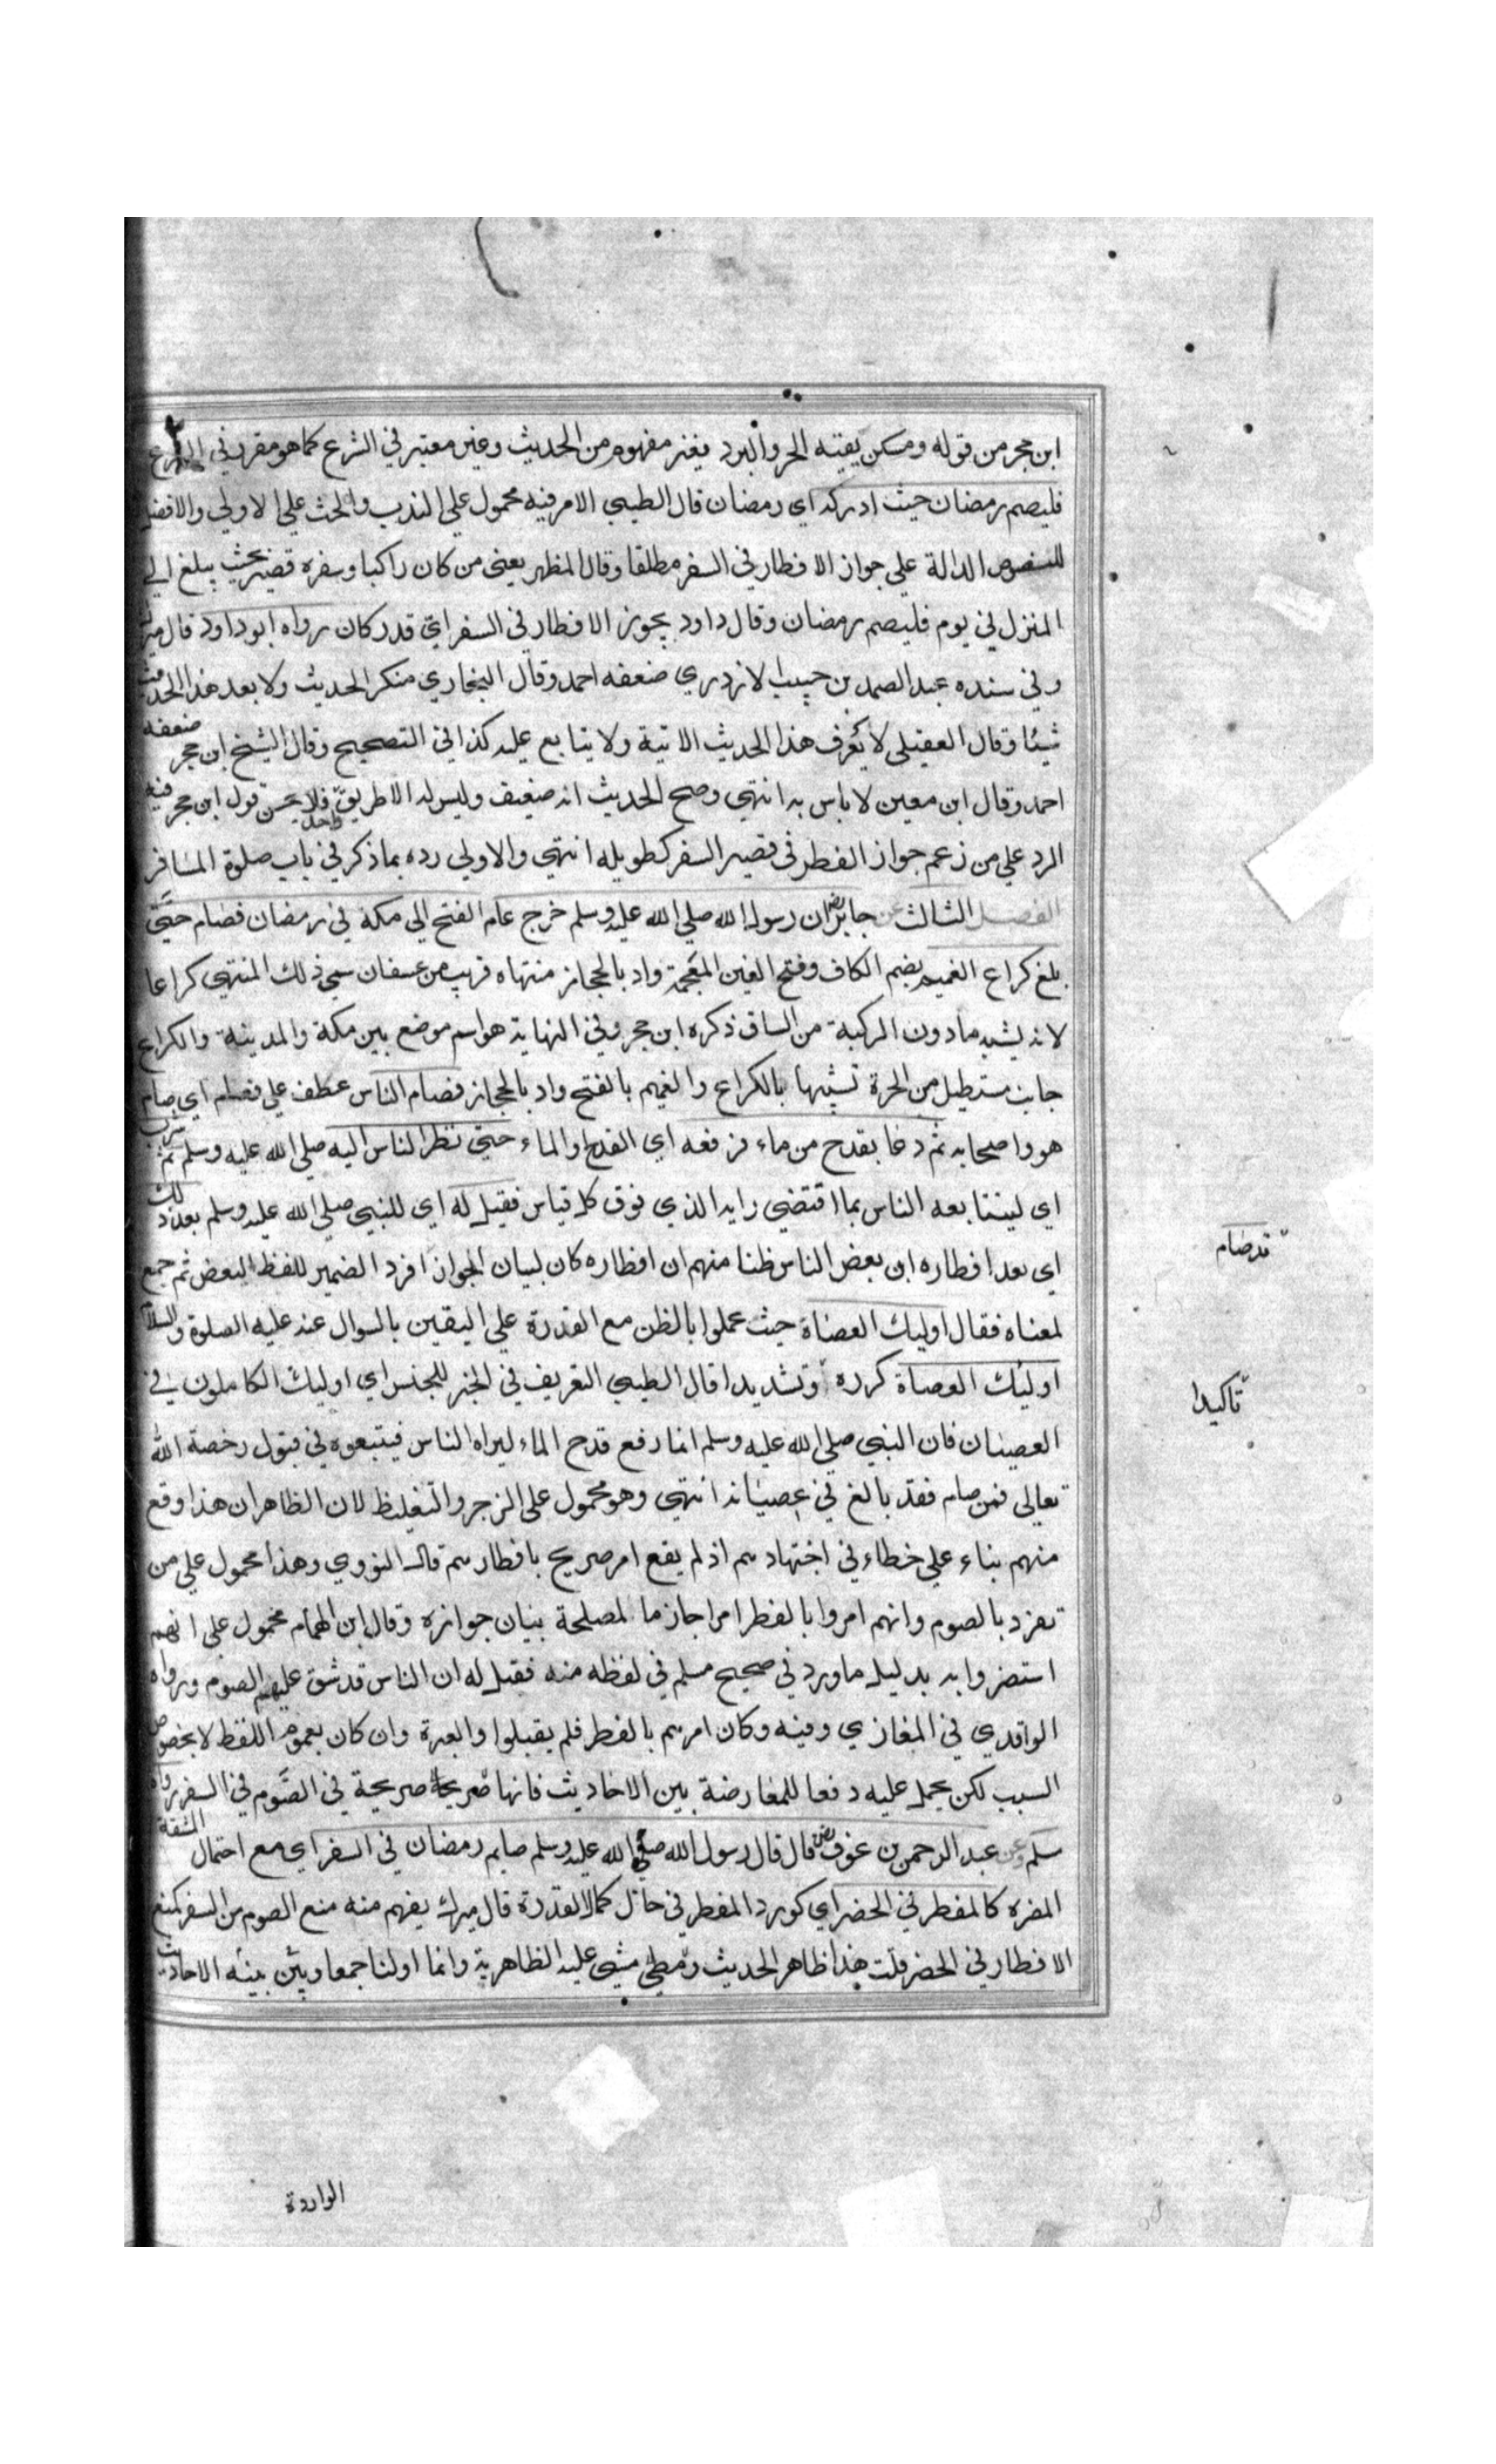 ابن حجر من قوله ومسكن يقيه الحر والبرد فغير مفهوم من الحديث وغير معتبر في الشرع كما هو مقرر في الفرع
فليصم رمضان حيث ادركه اي رمضان قال الطيبي الامر فيه محمول على الندب والحث على الاولي والافضل
للنصوص الدالة علي جواز الافطار في السفر مطلقا وقال المظهر يعني من كان راكبا وسفره قصير بحيث يبلغ الي
المنزل في يوم فليصم رمضان وقال داود يجوز الافطار في السفر اي قدر كان رواه ابو داود قال ميرك
وفي سنده عبد الصمد بن حبيب الازدري ضعفه احمد وقال البخاري منكر الحديث ولا يعد هذا الحديث
شيئا وقال العقيلي لا يعرف هذا الحديث الاتية ولا يتابع عليه كذا في التصحيح وقال الشيخ ابن حجر ضعفه
احمد وقال ابن معين لا باس به انتهي وصح الحديث انه ضعيف وليس له الا طريق واحد فلا يحسن قول ابن حجر فيه
الرد علي من زعم جواز الفطر في قصير السفر كطويله انتهي والاولي رده بما ذكر في باب صلوة المسافر
الفصل الثالث عن جابر رض ان رسول الله صلي الله عليه وسلم خرج عام الفتح الي مكة في رمضان فصام حتي
بلغ كراع الغميم بضم الكاف وفتح الغين المعجمة واد بالحجاز منتهاه قريب من عسفان سمي ذلك المنتهي كراعا
لانه يشبه مادون الركبة من الساق ذكره ابن حجر وفي النهاية هو اسم موضع بين مكة والمدينة والكراع
جانب مستطيل من الحرة تشبيها بالكراع والغميم بالفتح واد بالحجاز فصام الناس عطف علي فصام اي صام
هو واصحابه ثم دعا بقدح من ماء فرفعه اي القدح والماء حتي نظر الناس اليه صلي الله عليه وسلم ثم شرب
اي ليتتابعه الناس بما اقتضي رايه الذي فوق كل قياس فقيل له اي للنبي صلي الله عليه وسلم بعد ذلك
اي بعد افطاره ان بعض الناس ظنا منهم ان افطاره كان لبيان الجواز افرد الضمير للفظ البعض ثم جمع
قد صام
لمعناه فقال اوليك العصاة حيث عملوا بالظن مع القدرة علي اليقين بالسوال عنه عليه الصلوة والسلام
اوليك العصاة كرره وتشديدا قال الطيبي التعريف في الخبر للجنس اي اوليك الكاملون في
تاكيدا
العصيان فان النبي صلي الله عليه وسلم انما رفع قدح الماء ليراه الناس فيتبعوه في قبول رخصة الله
تعالي فمن صام فقد بالغ في عصيانه انتهي وهو محمول علي الزجر والتغليظ لان الظاهر ان هذا وقع
منهم بناء علي خطاء في اجتهادهم اذ لم يقع امر صريح بافطارهم قال النووي وهذا محمول علي من
تضرد بالصوم وانهم امروا بالفطر امرا جازما لمصلحة بيان جوازه وقال ابن الهمام محمول علي انهم
استضروا به بدليل ما ورد في صحيح مسلم في لفظه منه فقيل له ان الناس قد شق عليهم الصوم ورواه
الواقدي في المغازي وفيه وكان امرهم بالفطر فلم يقبلوا والعبرة وان كان بعموم اللفظ لا بخصوص
السبب لكن يحمل عليه دفعا للمعارضة بين الاحاديث فانها صريحة في الصوم في السفر رواه
مسلم وعن عبد الرحمن بن عوف رض قال قال رسول الله صلي الله عليه وسلم صايم رمضان في السفر اي مع احتمال المشقة
المضرة كالمفطر في الحضر اي كورد المفطر في حال كمال القدرة قال ميرك يفهم منه منع الصوم من السفر كمنع
الافطار في الحضر قلت هذا ظاهر الحديث مشي عليه الظاهرية وانما اولنا جمعا وبين بينه الاحاديث
الواردة